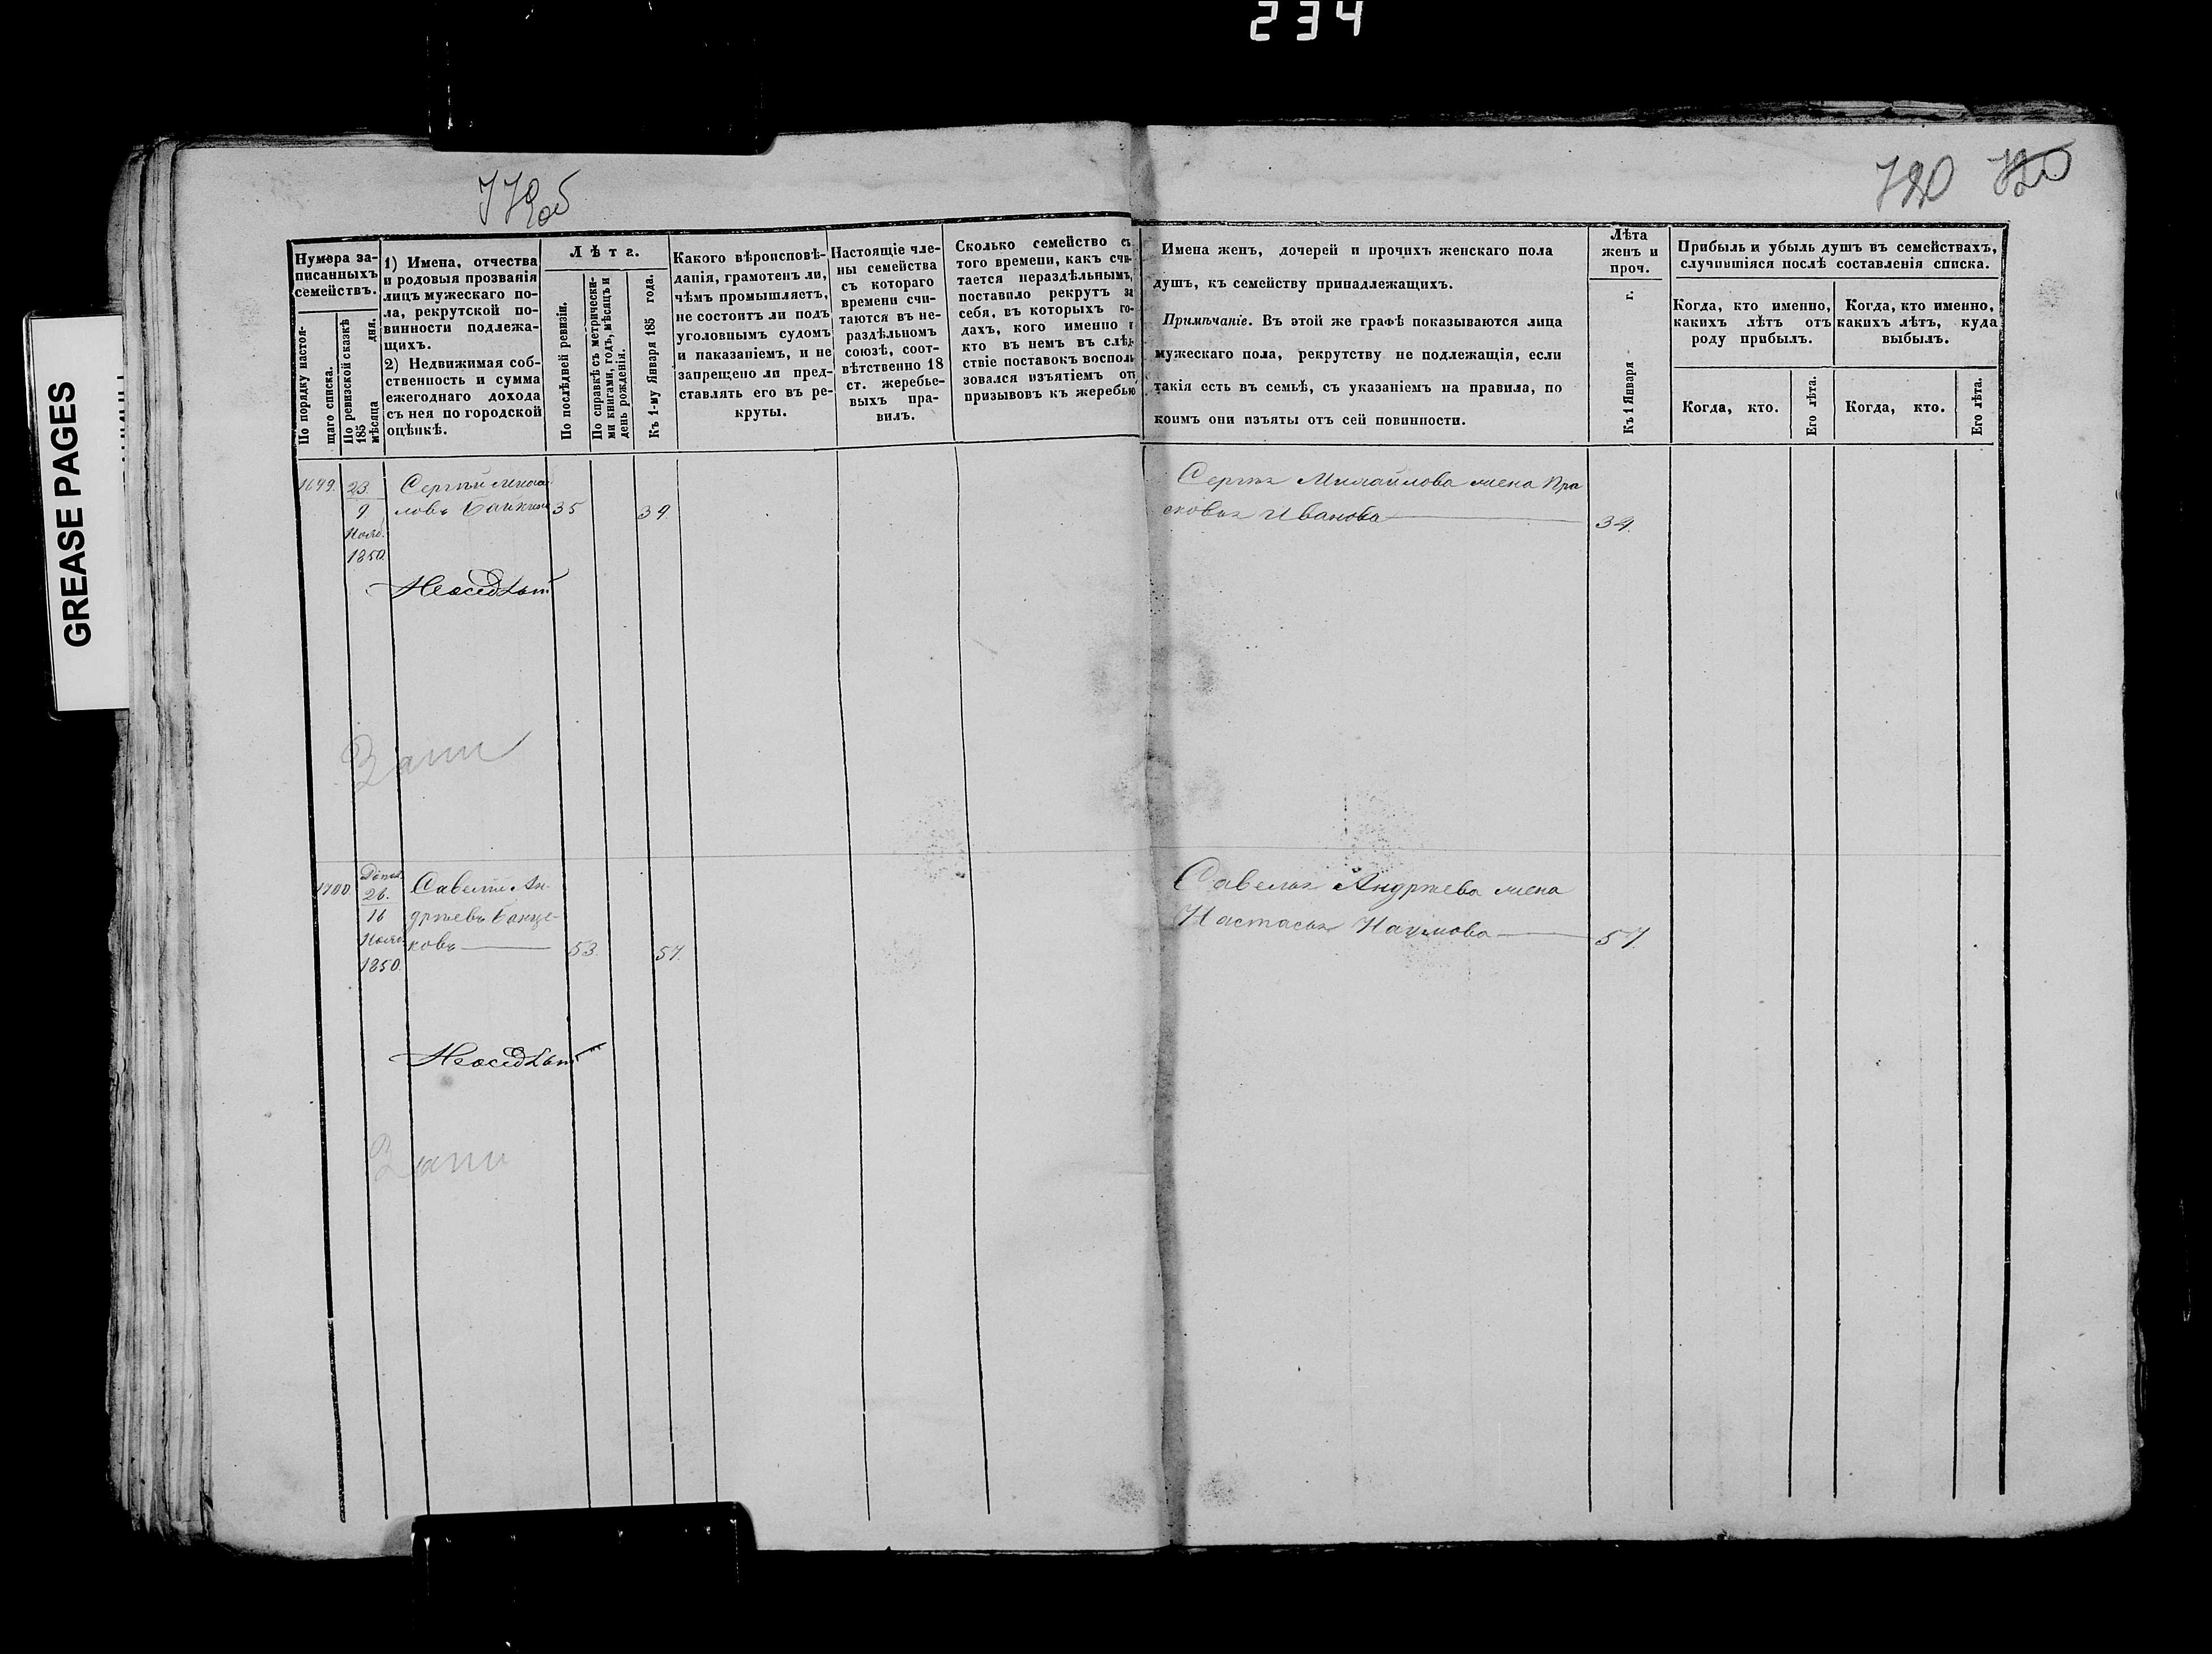 234
GREASE PAGES
Нумера за-
писанныхъ
семействъ.
По порядку настоя-
щаго списка.
По ревизской сказкѣ
185 дня.
мѣсяца
1) Имена, отчества
и родовыя прозванія
лицъ мужескаго по-
ла, рекрутской по-
винности подлежа-
щихъ.
2) Недвижимая соб-
ственность и сумма
ежегоднаго дохода
съ нея по городской
оцѣнкѣ.
Лѣта.
По послѣдней ревизіи.
По справкѣ съ метрически-
ми книгами, годъ, мѣсяцъ и
день рожденія.
Къ 1-му Января 185 года.
Какого вѣроисповѣ-
данія, грамотенъ ли,
чѣмъ промышляетъ,
не состоитъ ли подъ
уголовнымъ судомъ
и наказаніемъ, и не
запрещено ли пред-
ставлять его въ ре-
круты.
Настоящіе чле-
ны семейства
съ котораго
времени счи-
таются въ не-
раздѣльномъ
союзѣ, соот-
вѣтственно 18
ст. жеребье-
выхъ пра-
вилъ.
Сколько семейство съ
того времени, какъ счи-
тается нераздѣльнымъ,
поставило рекрутъ за
себя, въ которыхъ го-
дахъ, кого именно и
кто въ немъ въ слѣд-
ствіе поставокъ восполь
зовался изъятіемъ отъ
призывовъ къ жеребью
Имена женъ, дочерей и прочихъ женскаго пола
душъ, къ семейству принадлежащихъ.
Примѣчаніе. Въ этой же графѣ показываются лица
мужескаго пола, рекрутству не подлежащія, если
такія есть въ семьѣ, съ указаніемъ на правила, по
коимъ они изъяты отъ сей повинности.
Лѣта
женъ и
проч.
Къ 1 Января г.
Прибыль и убыль душъ въ семействахъ,
случившіяся послѣ составленія списка.
Когда, кто именно,
какихъ лѣтъ отъ
роду прибылъ.
Когда, кто именно,
какихъ лѣтъ, куда
выбылъ.
Когда, кто.
Его лѣта.
Когда, кто.
Его лѣта.
1699. 23. Сергѣй Михаи
9 ловъ 35 39.
Нояб.
1850.
Сергѣя Михайлова жена Пра
сковья Иванова 39.
1700 Допол. Савелій Ан-
26.
16 дрѣевъ
Нояб. ковъ 53. 57.
1850.
Савелья Андрѣева жена
Настасья Наумова 57.